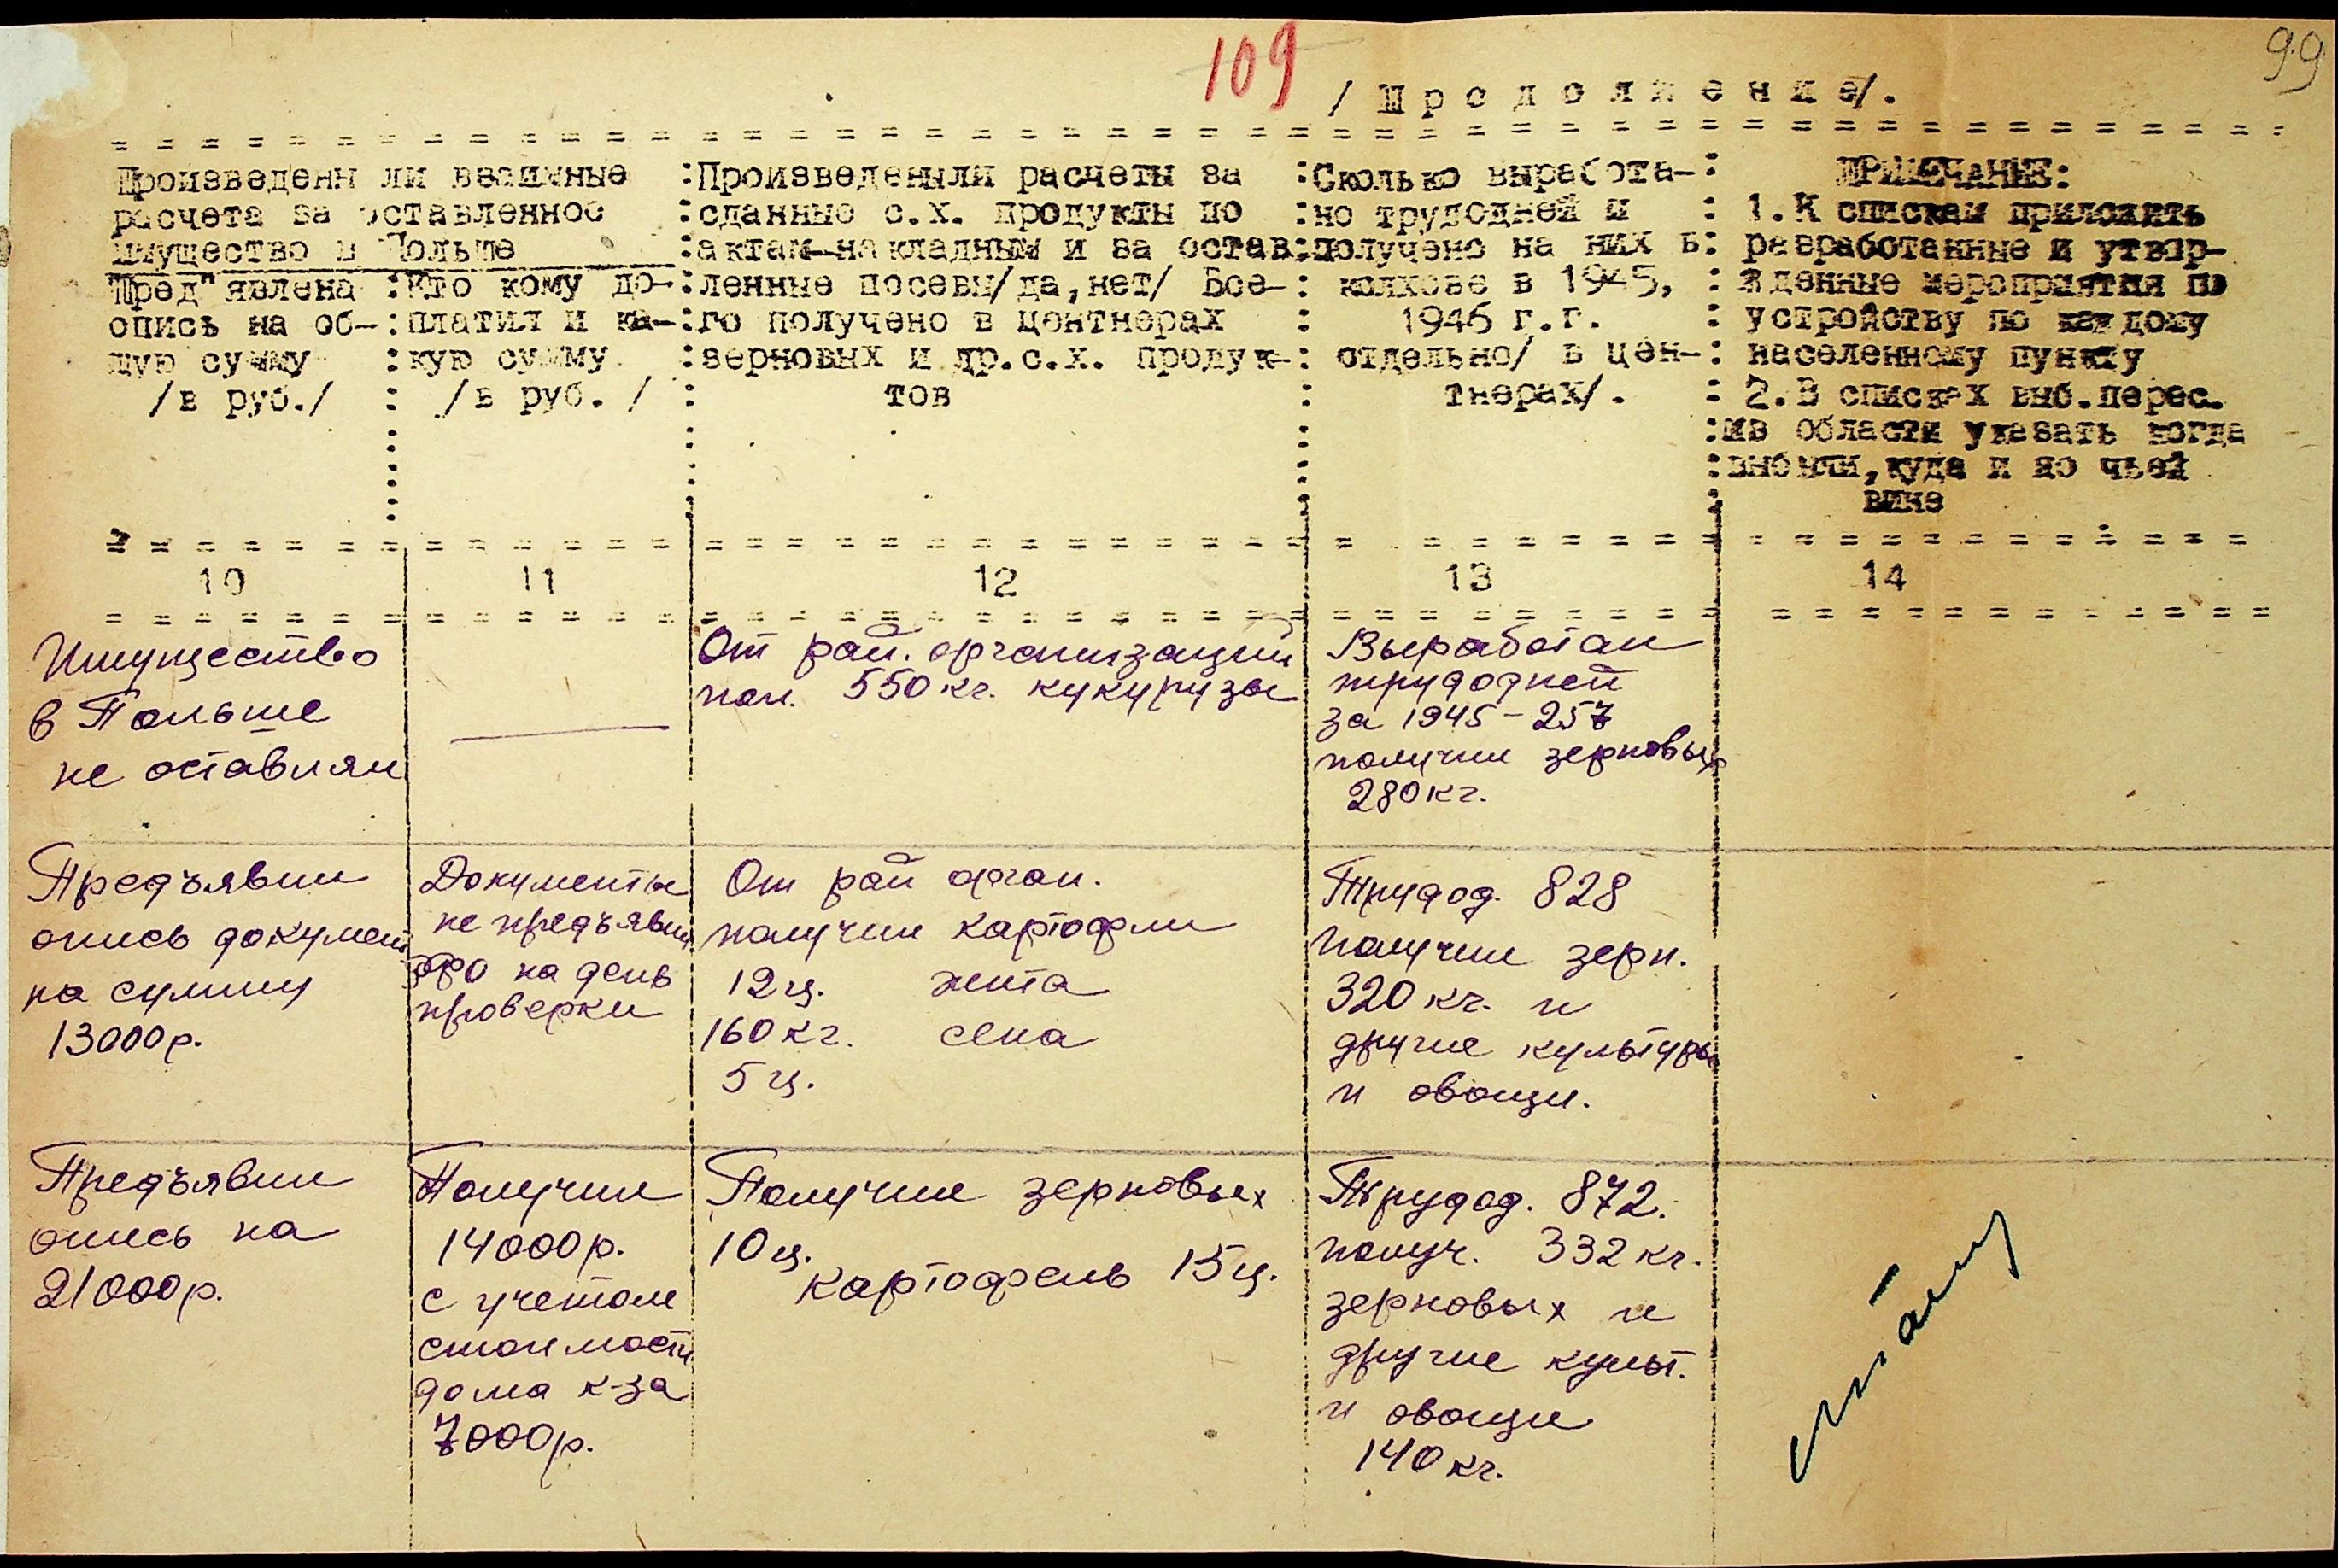 109
99
/ П р о д о л ж е н и е/.
Произведены ли взаимные
расчета за оставленное
имущество в Польше
:Произведеныли расчеты за
:сданные с.х. продукты по
:актам-накладным и за остав
Пред"явлена
опись на об-
щую сумму
/в руб./
:Кто кому до-
:платил и ка-
:кую сумму
/в руб. /
:ленные посевы/да,нет/ Все-
:го получено в центнерах
:зерновых и др.с.х. продук-
тов
:Сколько выработа-
:но трудодней и
:получено на них в
колхозе в 1945,
1946 г.г.
отдельно/ в цен-
тнерах/.
ПРИМЕЧАНИЕ:
1.К спискам приложить
разработанные и утвер-
жденные мероприятия по
устройству по каждому
населенному пункту
2.В списках выб.перес.
:из области указать когда
:выбыли,куда и по чьей
вине
10
11
12
13
14
Имущество
в Польше
не оставлял
От рай. организации
пол. 550 кг. кукурузы
Выработал
трудодней
за 1945 - 257
получил зерновых
280 кг.
Предъявил
опись докумен
на сумму
13000 р.
Документы
не предъявил
на день
проверки
От рай орган.
получил картофли
12 ц. жита
160 кг. сена
5 ц.
Трудод. 828
получил зерн.
320 кг. и
другие культуры
и овощи.
Предъявил
опись на
21000 р.
Получил
14000 р.
с учетом
стоимости
дома к-за
7000 р.
Получил зерновых
10 ц.
картофель 15 ц.
Трудод. 872.
получ. 332 кг.
зерновых и
другие культ.
и овощи
140 кг.